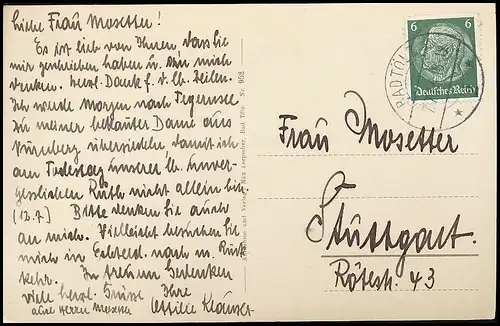 Liebe Frau Mosetter!
Es ist lieb von Ihnen, dass Sie
mir geschrieben haben u. an mich
denken. Herzl. Dank f. d. lb. Zeilen.
Ich werde morgen nach Tegernsee
zu meiner bekannten Dame aus
Nürnberg übersiedeln, damit ich
am Todestag unserer lb. unver-
gesslichen Ruth nicht allein bin.
(12.7.) Bitte denken Sie auch
an mich. Vielleicht besuchen Sie
mich in nach m. Rück-
kehr. In treuem Gedenken
viele herzl. Grüsse Ihre
Ottilie
Herrn Mosetter
Verlag Max Bad Tölz. Nr. 968
6 6
Deutsches Reich
BAD TÖLZ
Frau Mosetter
Stuttgart.
Rötestr. 43